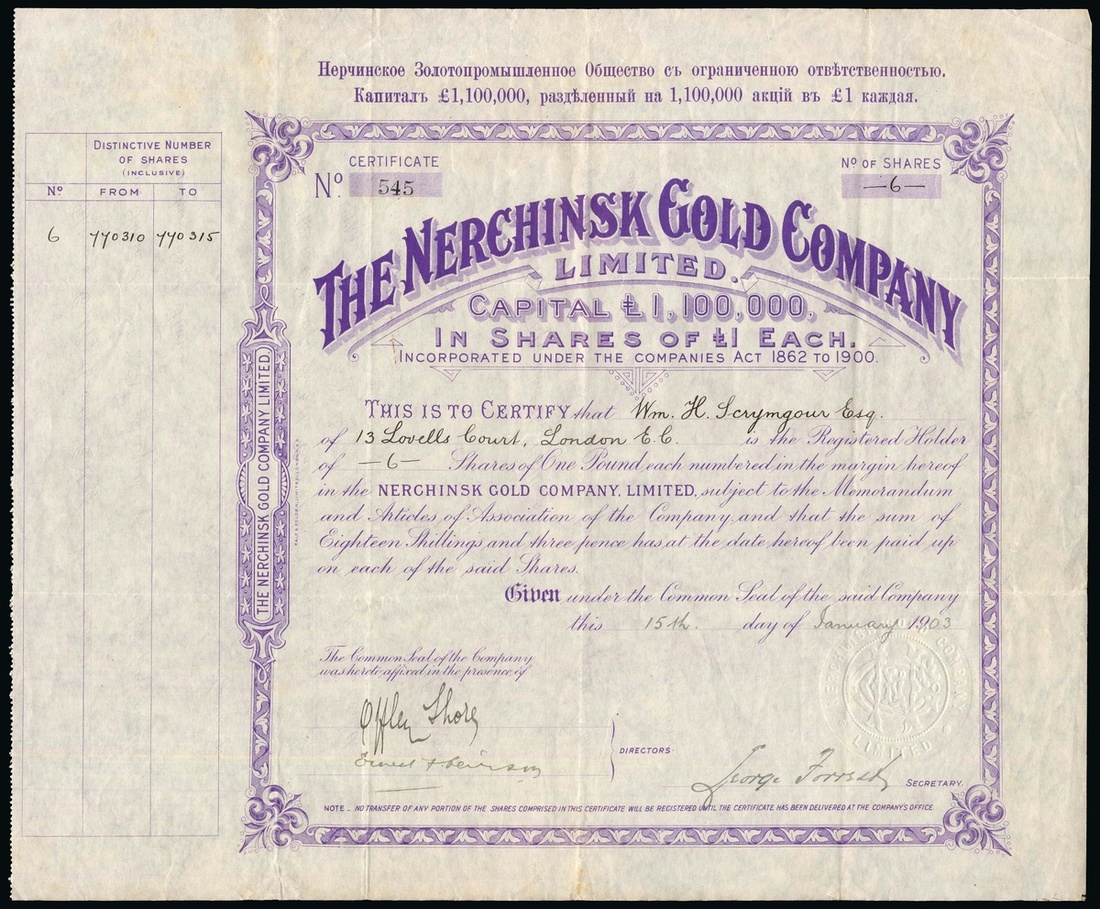 Нерчинское Золотопромышленное Общество съ ограниченною отвѣтственностью.
Капиталъ £1,100,000, раздѣленный на 1,100,000 акцій въ £1 каждая.
DISTINCTIVE NUMBER
OF SHARES
(INCLUSIVE)
Nº FROM TO
6 770310 770315
CERTIFICATE
Nº 545
Nº OF SHARES
—6—
THE NERCHINSK GOLD COMPANY
LIMITED.
CAPITAL £1,100,000,
IN SHARES OF £1 EACH.
INCORPORATED UNDER THE COMPANIES ACT 1862 TO 1900.
THIS IS TO CERTIFY that Wm. H. Scrymgour Esq.
of 13 Lovells Court, London E.C. is the Registered Holder
of —6— Shares of One Pound each numbered in the margin hereof
in the NERCHINSK GOLD COMPANY, LIMITED, subject to the Memorandum
and Articles of Association of the Company, and that the sum of
Eighteen Shillings and three pence has, at the date hereof been paid up
on each of the said Shares.
Given under the Common Seal of the said Company
this 15th. day of January 1903
The Common Seal of the Company
was hereto affixed in the presence of
Offley Shore
Ernest
DIRECTORS
George Forrest
SECRETARY.
NOTE – NO TRANSFER OF ANY PORTION OF THE SHARES COMPRISED IN THIS CERTIFICATE WILL BE REGISTERED UNTIL THE CERTIFICATE HAS BEEN DELIVERED AT THE COMPANY'S OFFICE
THE NERCHINSK GOLD COMPANY LIMITED.
COMPANY
LIMITED